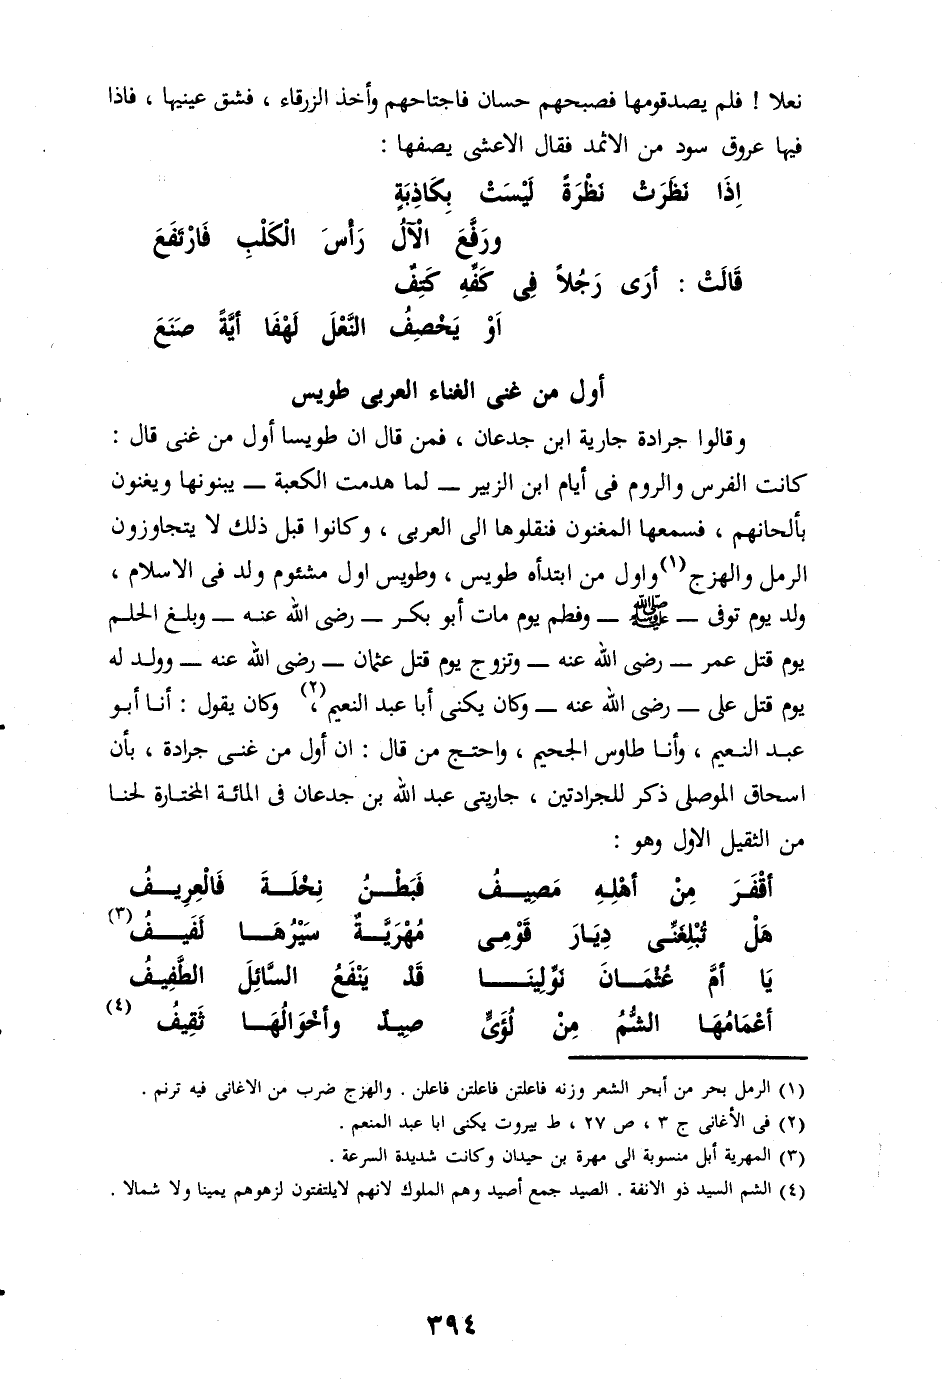 نعلا ! فلم يصدقومها فصبحهم حسان فاجتاحهم وأخذ الزرقاء ، فشق عينيها ، فاذا
فيها عروق سود من الاثمد فقال الاعشى يصفها :
اِذَا نَظَرَتْ نَظْرَةً لَيْسَتْ بِكَاذِبَةٍ
ورَفَّعَ الْآلُ رَأْسَ الْكَلْبِ فَارْتَفَعَ
قَالَتْ : أرَى رَجُلاً فِى كَفِّهِ كَتِفٌ
اَوْ يَخْصِفُ النَّعْلَ لَهْفَا أيَّةً صَنَعَ
أول من غنى الغناء العربى طويس
وقالوا جرادة جارية ابن جدعان ، فمن قال ان طويسا أول من غنى قال :
كانت الفرس والروم فى أيام ابن الزبير — لما هدمت الكعبة — يبنونها ويغنون
بألحانهم ، فسمعها المغنون فنقلوها الى العربى ، وكانوا قبل ذلك لا يتجاوزون
الرمل والهزج (١) واول من ابتدأه طويس ، وطويس اول مشئوم ولد فى الاسلام ،
ولد يوم توفى — ﷺ — وفطم يوم مات أبو بكر — رضى الله عنه — وبلغ الحلم
يوم قتل عمر — رضى الله عنه — وتزوج يوم قتل عثمان — رضى الله عنه — وولد له
يوم قتل على — رضى الله عنه — وكان يكنى أبا عبد النعيم (٢) ، وكان يقول : أنا أبو
عبد النعيم ، وأنا طاوس الجحيم ، واحتج من قال : ان أول من غنى جرادة ، بأن
اسحاق الموصلى ذكر للجرادتين ، جاريتى عبد الله بن جدعان فى المائة المختارة لحنا
من الثقيل الاول وهو :
أقْفَرَ مِنْ أهْلِهِ مَصِيفُ فَبَطْنُ نِخْلَةَ فَالْعِرِيفُ
هَلْ تُبْلِغَنِّى دِيَارَ قَوْمِى مُهْرِيَّةٌ سَيْرُهَا لَفَيفُ (٣)
يَا أمَّ عُثْمَانَ نَوِّلِينَا قَدْ يَنْفَعُ السَّائِلَ الطَّفِيفُ
أعْمَامُهَا الشُّمُ مِنْ لُؤَىٍّ صِيدٌ وأخْوَالُهَا ثَقِيفُ (٤)
(١) الرمل بحر من أبحر الشعر وزنه فاعلتن فاعلتن فاعلن . والهزج ضرب من الاغانى فيه ترنم .
(٢) فى الأغانى ج ٣ ، ص ٢٧ ، ط بيروت يكنى ابا عبد المنعم .
(٣) المهرية أبل منسوبة الى مهرة بن حيدان وكانت شديدة السرعة .
(٤) الشم السيد ذو الانفة . الصيد جمع أصيد وهم الملوك لانهم لايلتفتون لزهوهم يمينا ولا شمالا .
٣٩٤